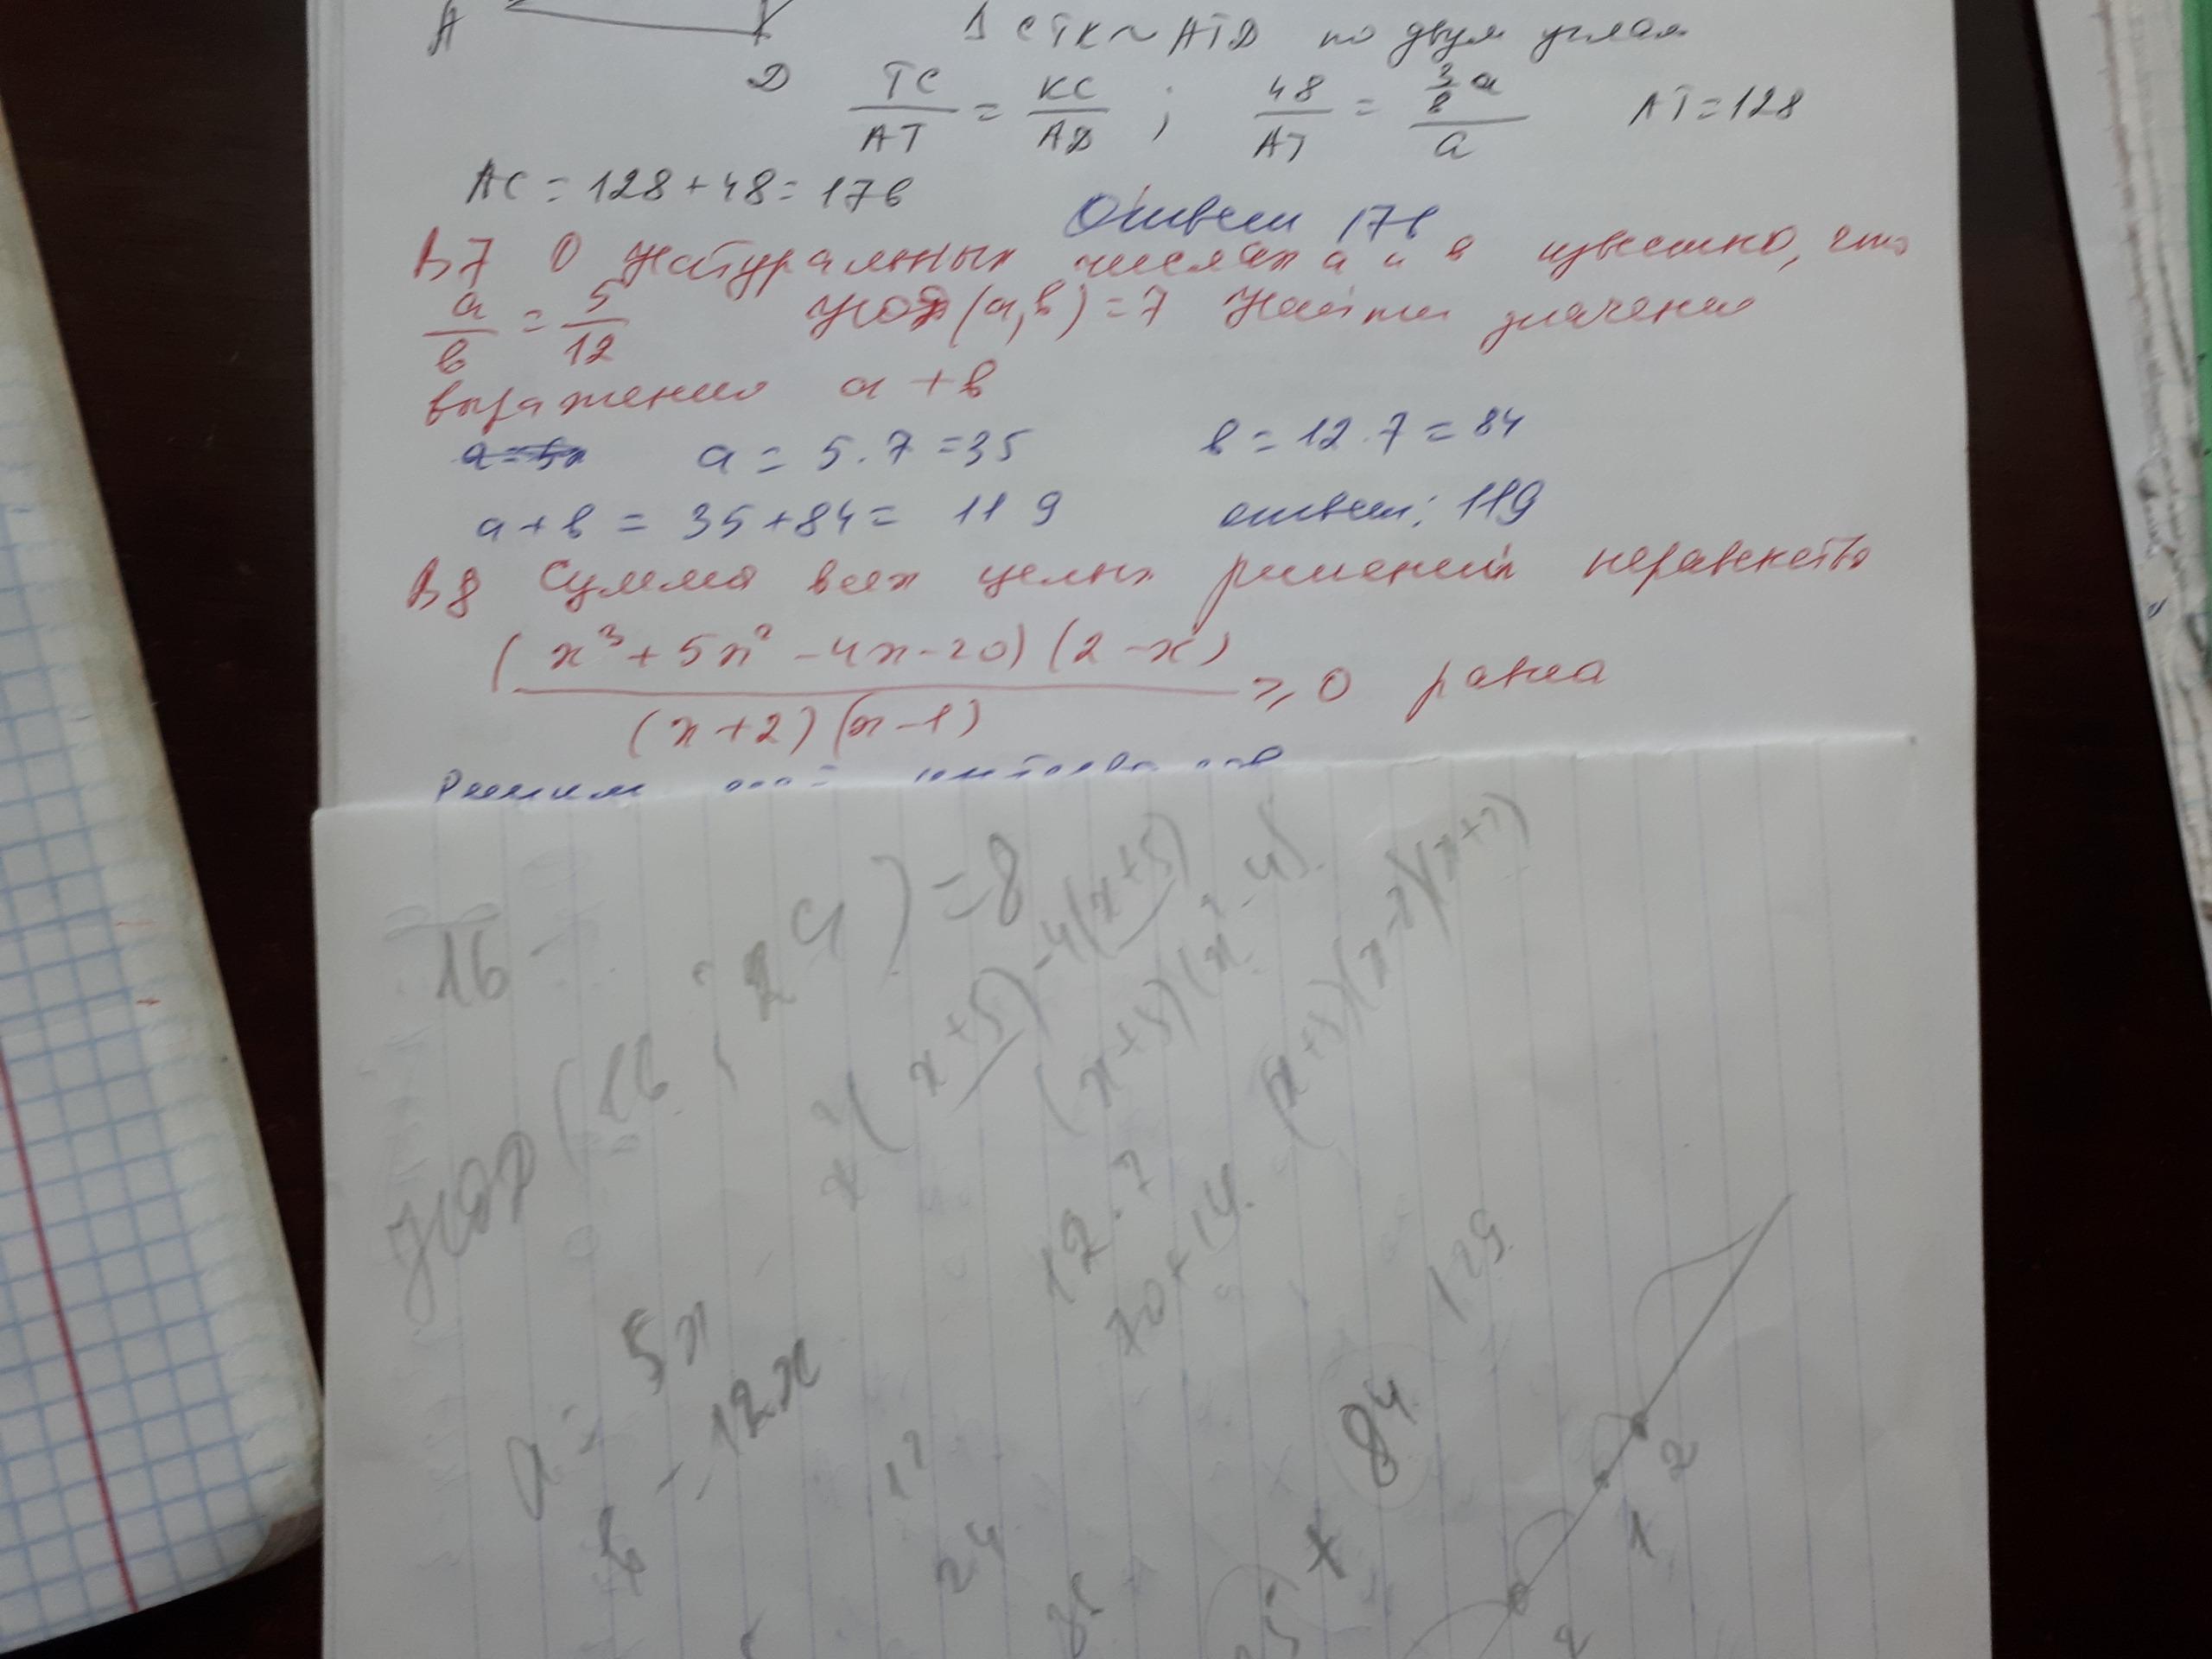 А
D
Δ СТК ~ АТD по двум углам
ТС/АТ = КС/АD ; 48/АТ = (3/8 a)/a АТ = 128
АС = 128 + 48 = 176
Ответ 176
В7 О натуральных числах a и в известно, что
a/в = 5/12 НОД (a, в) = 7 Найти значение
выражения a + в
a = 5 · 7 = 35 в = 12 · 7 = 84
a + в = 35 + 84 = 119 ответ: 119
В8 Сумма всех целых решений неравенства
(x³ + 5x² - 4x - 20) (2 - x) / (x + 2) (x - 1) ≥ 0 равна
Решим
16
НОД (16 ; 24) = 8
x²(x+5) - 4(x+5)
(x+5)(x² - 4)
(x+5)(x-2)(x+2)
12 · 7
70 + 14
a = 5x
в = 12x
12
24
84
2
1